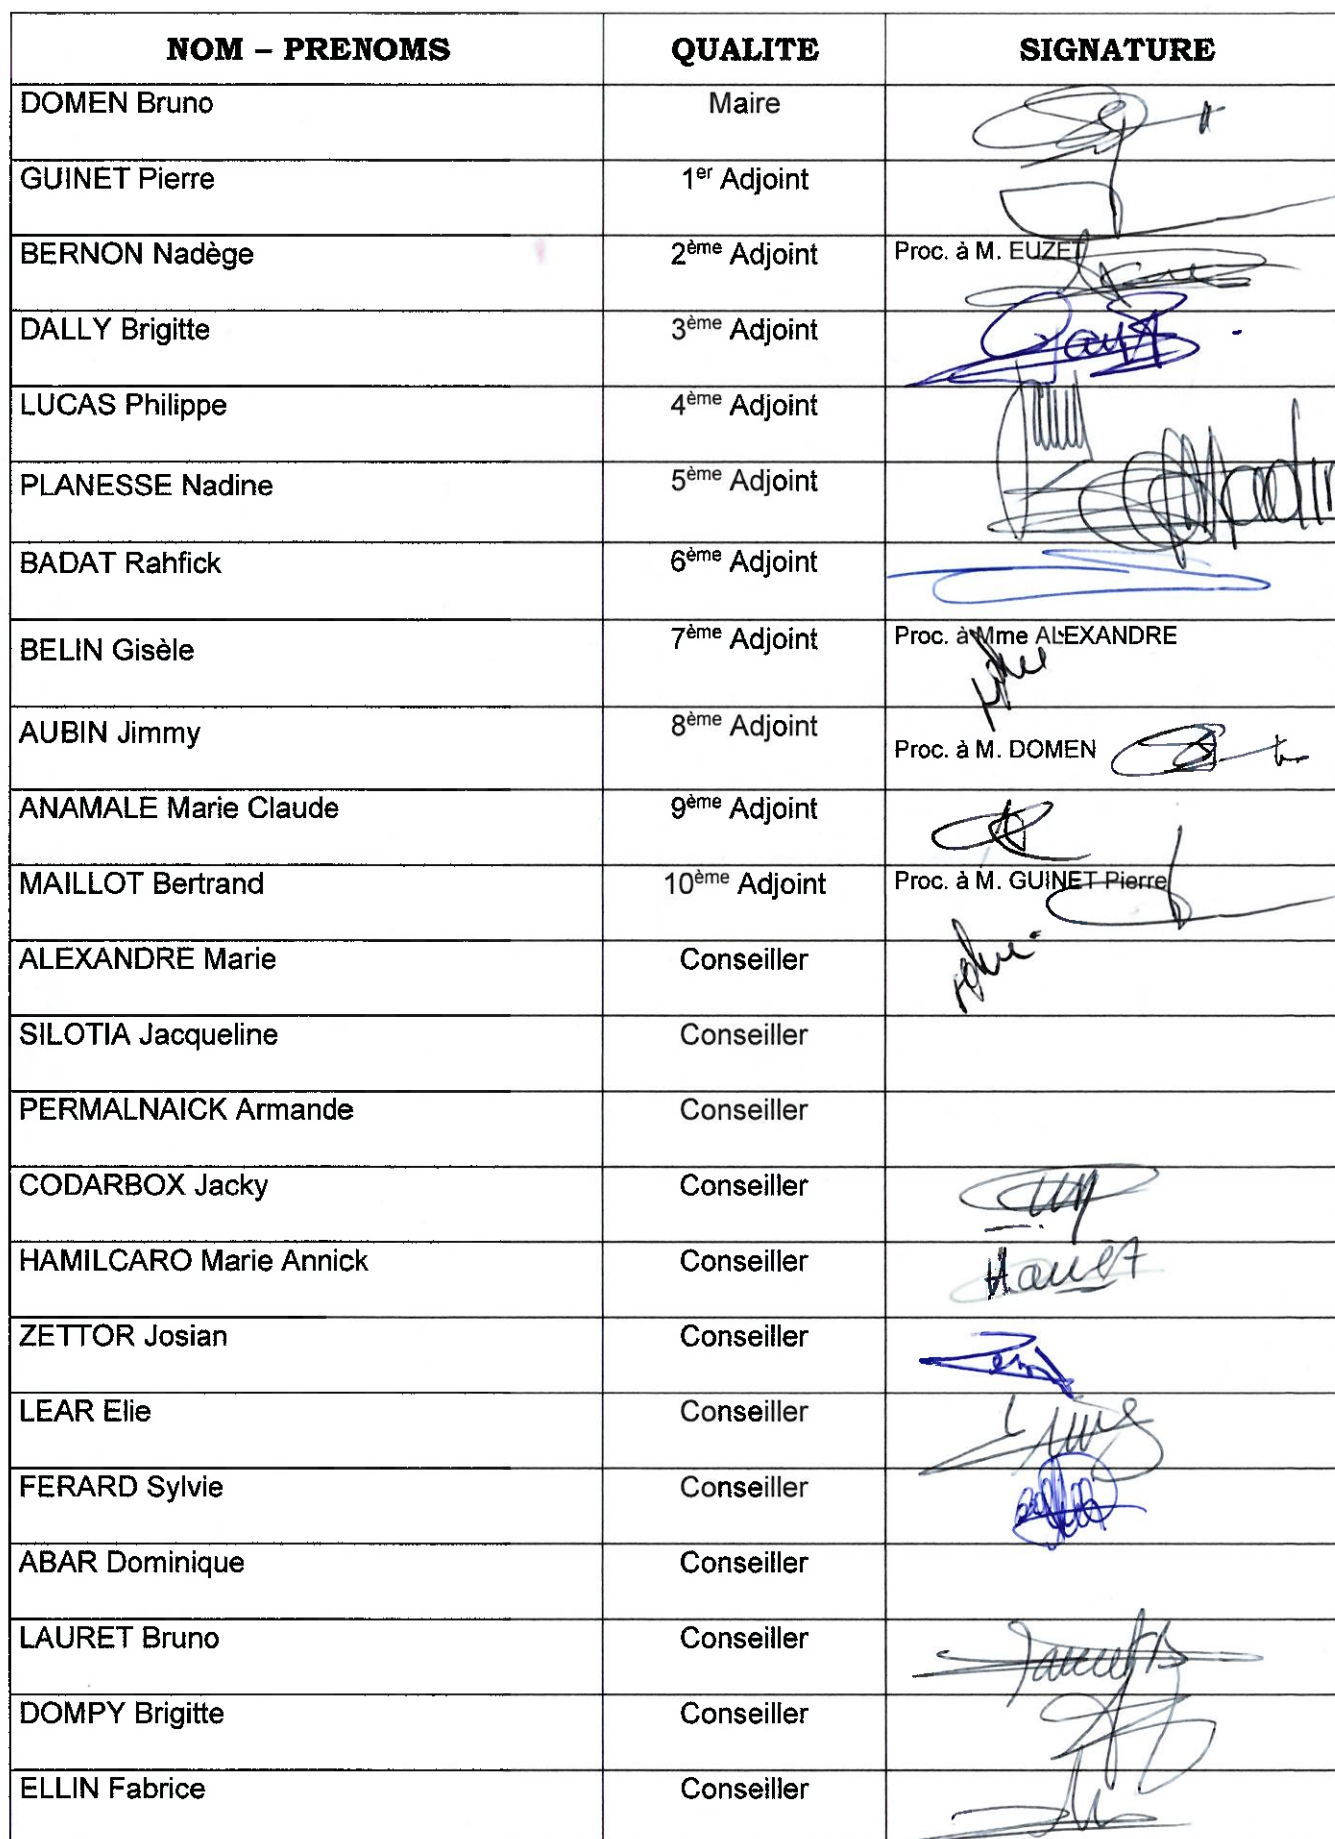 NOM – PRENOMS QUALITE SIGNATURE
DOMEN Bruno Maire
GUINET Pierre 1er Adjoint
BERNON Nadège 2ème Adjoint Proc. à M. EUZET
DALLY Brigitte 3ème Adjoint
LUCAS Philippe 4ème Adjoint
PLANESSE Nadine 5ème Adjoint
BADAT Rahfick 6ème Adjoint
BELIN Gisèle 7ème Adjoint Proc. à Mme ALEXANDRE
AUBIN Jimmy 8ème Adjoint Proc. à M. DOMEN
ANAMALE Marie Claude 9ème Adjoint
MAILLOT Bertrand 10ème Adjoint Proc. à M. GUINET Pierre
ALEXANDRE Marie Conseiller
SILOTIA Jacqueline Conseiller
PERMALNAICK Armande Conseiller
CODARBOX Jacky Conseiller
HAMILCARO Marie Annick Conseiller
ZETTOR Josian Conseiller
LEAR Elie Conseiller
FERARD Sylvie Conseiller
ABAR Dominique Conseiller
LAURET Bruno Conseiller
DOMPY Brigitte Conseiller
ELLIN Fabrice Conseiller